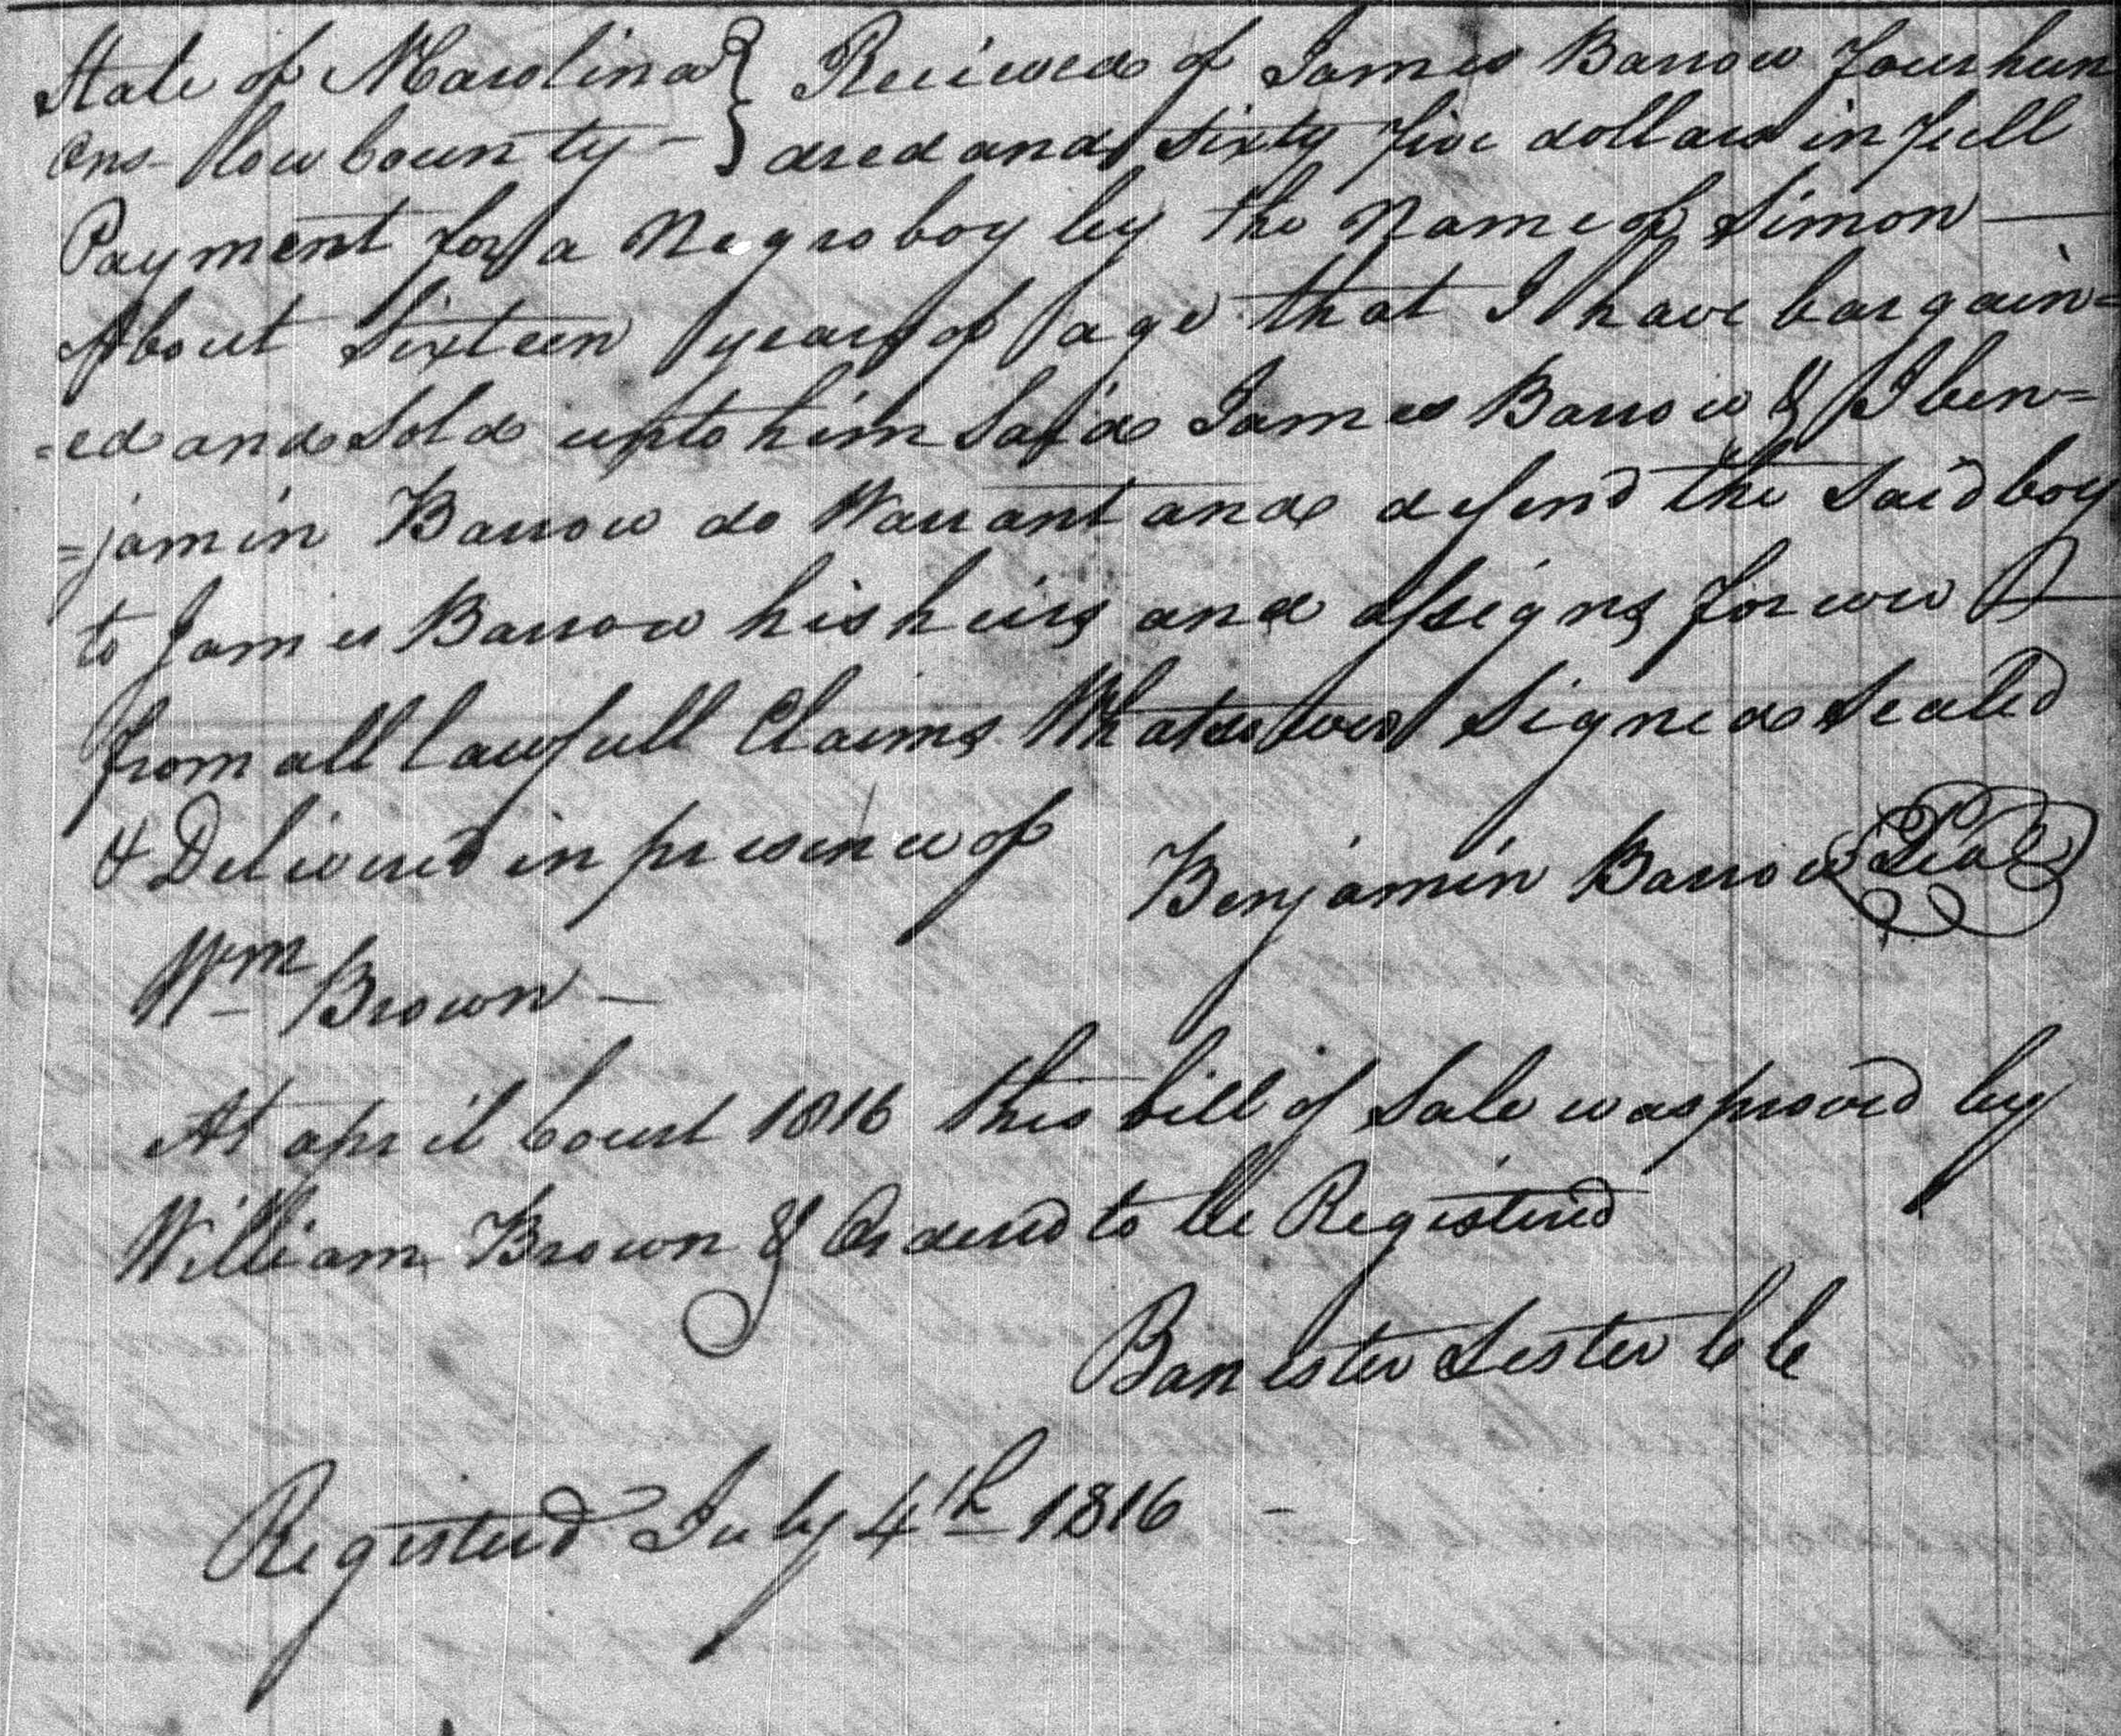 State of NCarolina } Recieved of James Barrow Four hun
Ons-low County - } dred and sixty five dollars in full
Payment for a Negro boy by the Name of Simon
About Sixteen years of age that I have bargain=
=ed and sold unto him said James Barrow & I ben=
=jamin Barrow do Warrant and defend the said boy
to James Barrow his heirs and assigns forever
from all lawfull Claims Whatsoever Signed Sealed
& Delivered in presence of Benjamin Barrow Seal
Wm Brown -
At april Court 1816 this bill of sale was proved by
William Brown & Ordered to be Registered
Banester Lester CC
Registered July 4th 1816 -